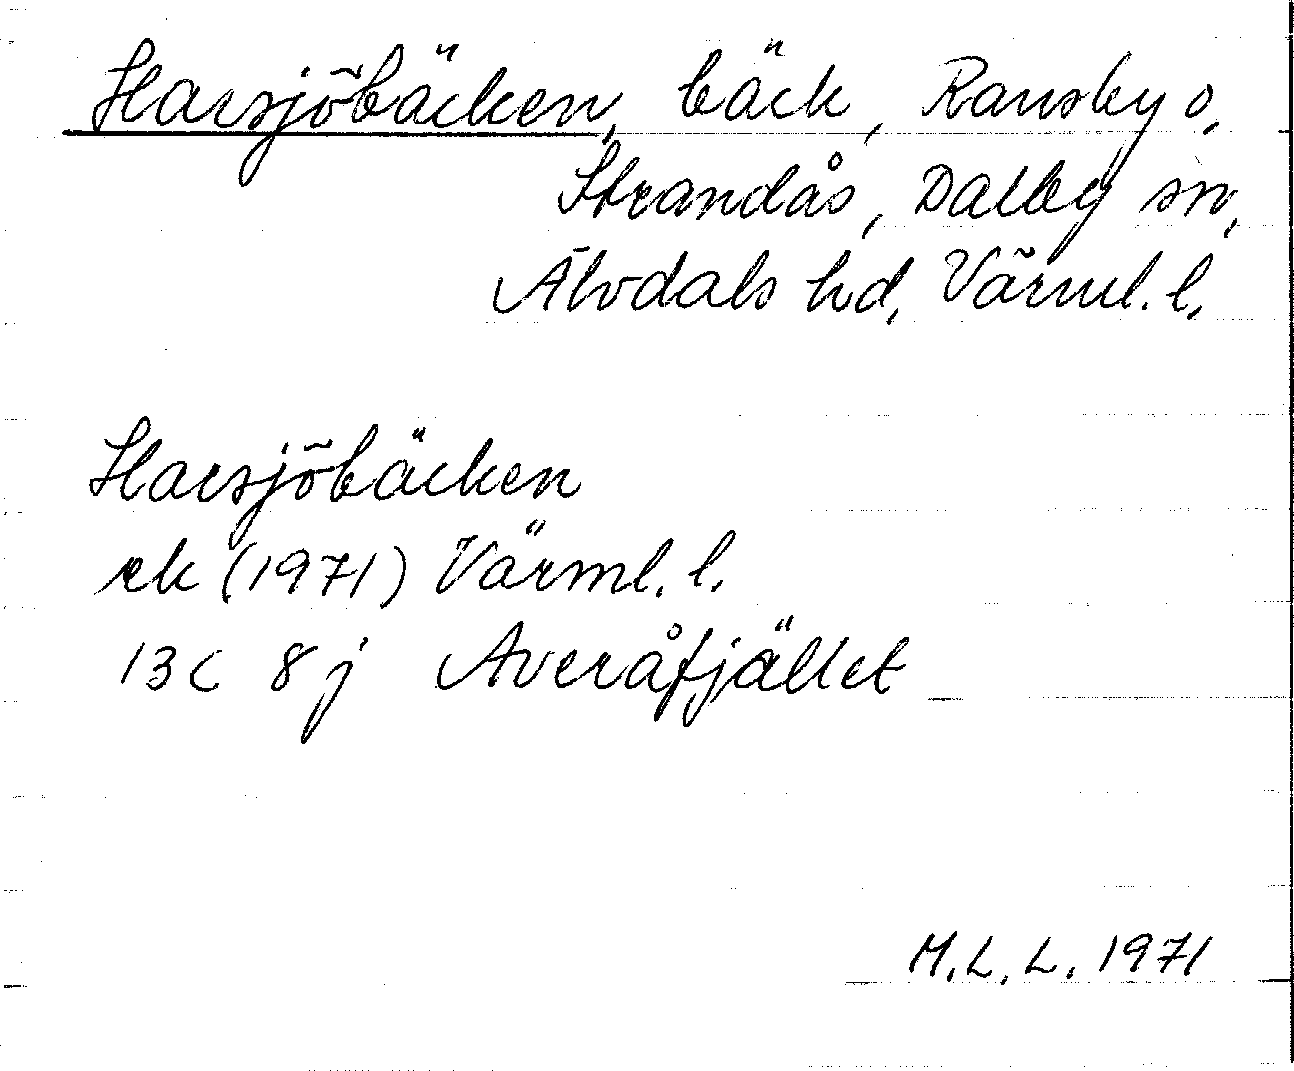 Harsjöbäcken, bäck, Ransby o.
Strandås, Dalby sn,
Älvdals hd, Värml. l.
Harsjöbäcken
rk (1971) Värml. l.
13C 8j Averåfjället
M.L.L. 1971